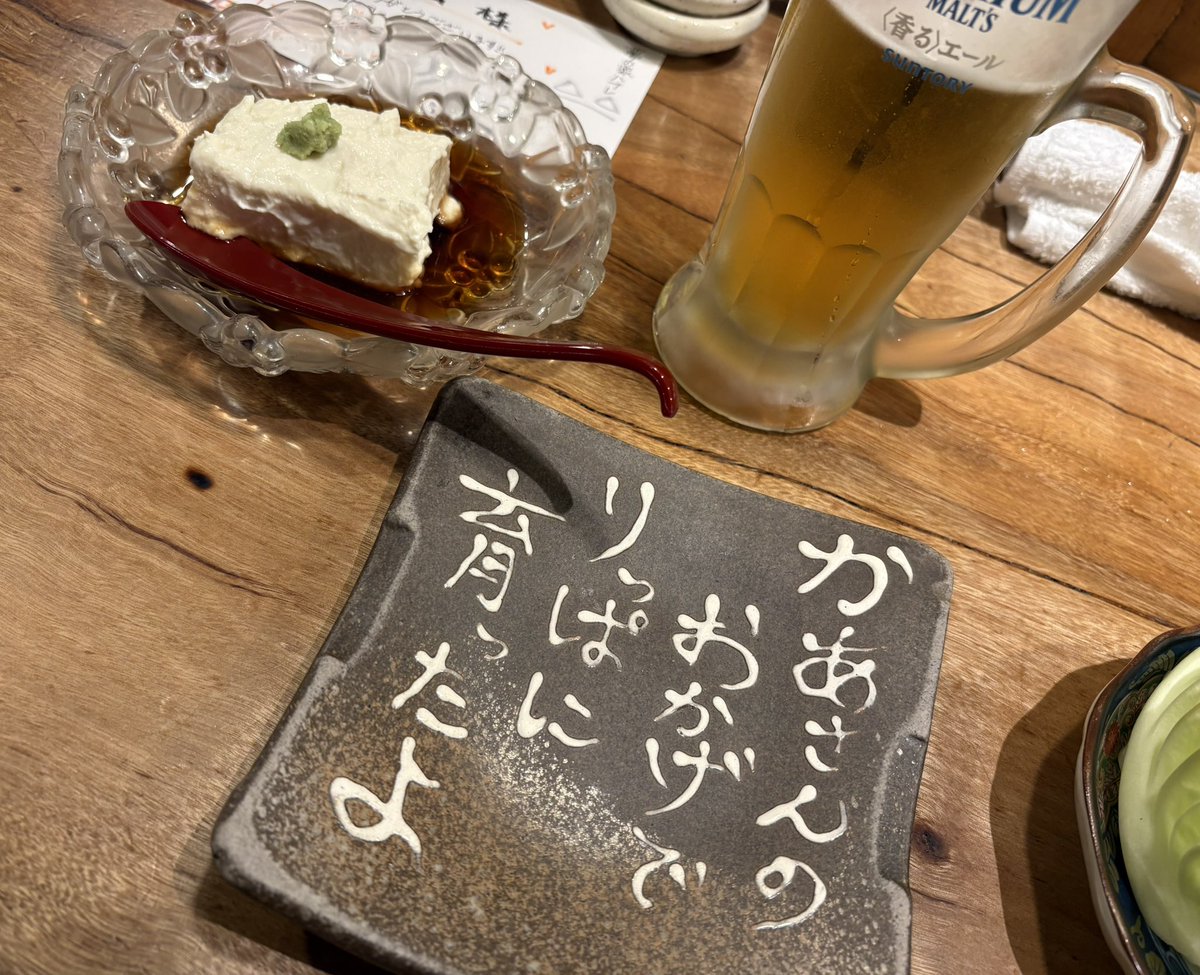 様
MIUM
MALT'S
〈香る〉エール
SUNTORY
かあさんの
おかげで
りっぱに
育ったよ